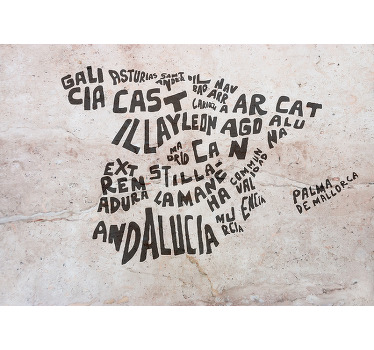 GALI
CIA
ASTURIAS
SANT
ANDER
BIL
BAO
NAV
ARR
A
CAST
ILLAYLEON
AR
AGO
N
CAT
ALU
NA
MA
DRID
CA
STILLA-
LA MAN
HA
EXT
REM
ADURA
VAL
ENCIA
MU
RCIA
ANDALUCIA
PALMA
DE MALLORCA